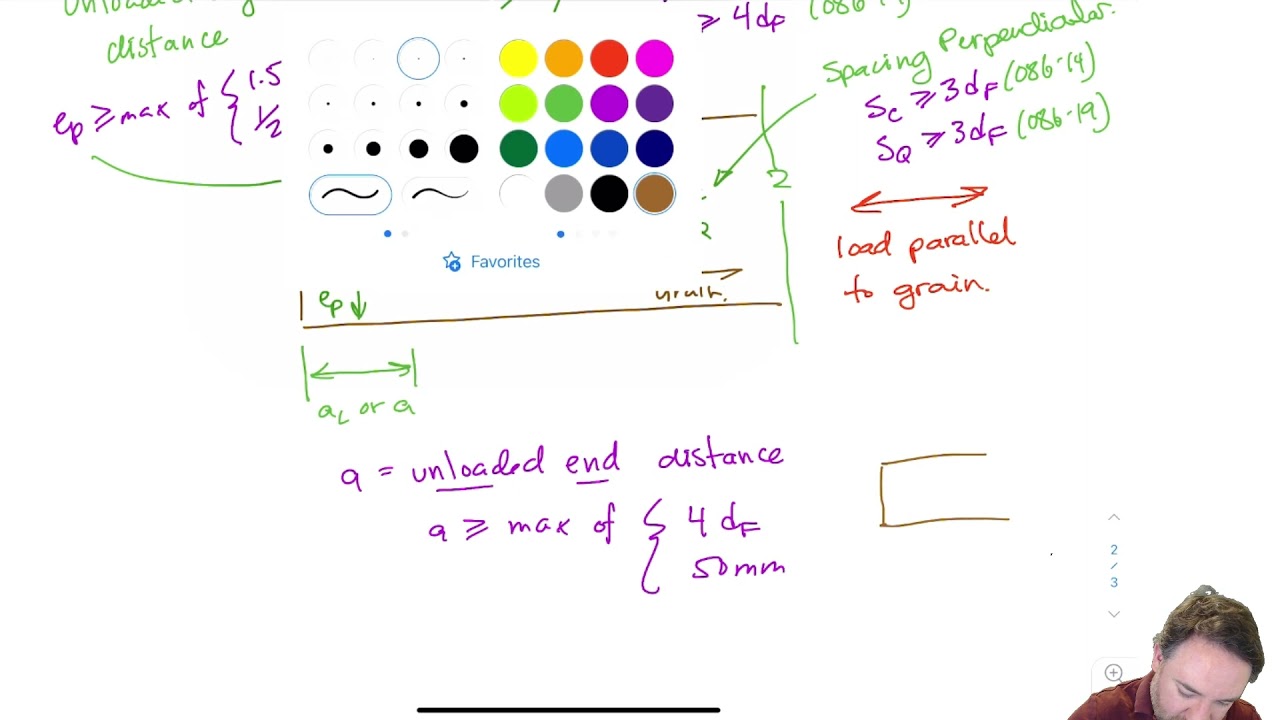 distance
ep ≥ max of { 1.5
1/2
≥ 4dF (086-14)
Spacing Perpendicular.
Sc ≥ 3dF (086-14)
SQ ≥ 3dF (086-19)
2
load parallel
to grain.
Favorites
ep
grain.
aL or a
a = unloaded end distance
a ≥ max of { 4 dF
50mm
2
/
3